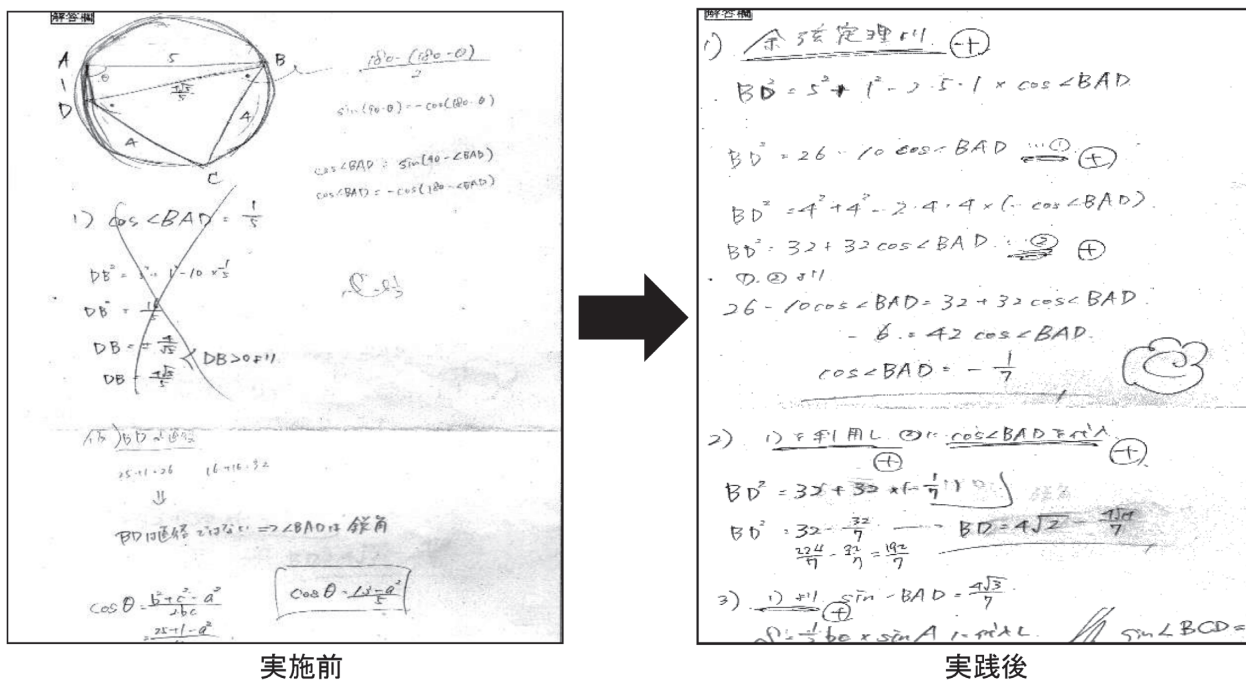 解答欄
A
5
B
1
θ
D
4
4
C
180-(180-θ)
2
sin(90-θ)=-cos(180-θ)
cos∠BAD = sin(90-∠BAD)
cos∠BAD = -cos(180-∠BAD)
1) cos∠BAD = 1/5
DB>0より
25+1=26 16+16=32
⇓
BDは直径ではない⇒∠BADは鋭角
cosθ=b²+c²-a²/2bc
25+1-a²
実施前
解答欄
1) 余弦定理より +
BD²=5²+1²-2・5・1×cos∠BAD
BD²=26-10cos∠BAD …① +
BD²=4²+4²-2・4・4×(-cos∠BAD)
BD²=32+32cos∠BAD …② +
①,②より
26-10cos∠BAD=32+32cos∠BAD
-6=42cos∠BAD
cos∠BAD=-1/7
2) 1)を利用し ②に cos∠BADを代入
+ +
BD²=32+32×(-1/7)
BD²=32-32/7 BD=4√2-
224/7-32/7=192/7
3) 1)より sin∠BAD=4√3/7
+
×sinA に代入し sin∠BCD=
実践後